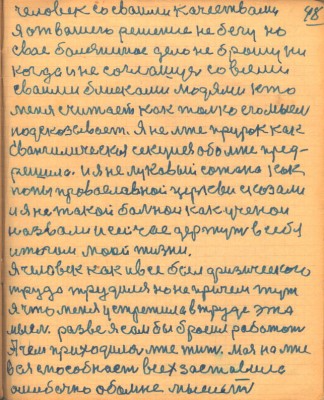 98
человек со своими качествами
я от вашего решение не бегу но
свое болезненое дело не брошу ни
когда и не соглашуся со всеми
своими близкими людями кто
меня считает как только сомысем
подсказывает. Я не лже пророк как
Евангилическая секция обо мне пред-
решила. и я не лукавый сотона как
попы провославной церкви сказали
и я не такой болной как ученои
назвали и сейчас держут в себе
итогом моей жизни.
Я человек как и все был физического
труда трудился но не причем тут
я что меня устретила в труде эта
мысл. разве я сам бы бросил работат
А чем приходилос мне жит. моя на мне
вся способност всех заставила
ошибочно обо мне мыслит